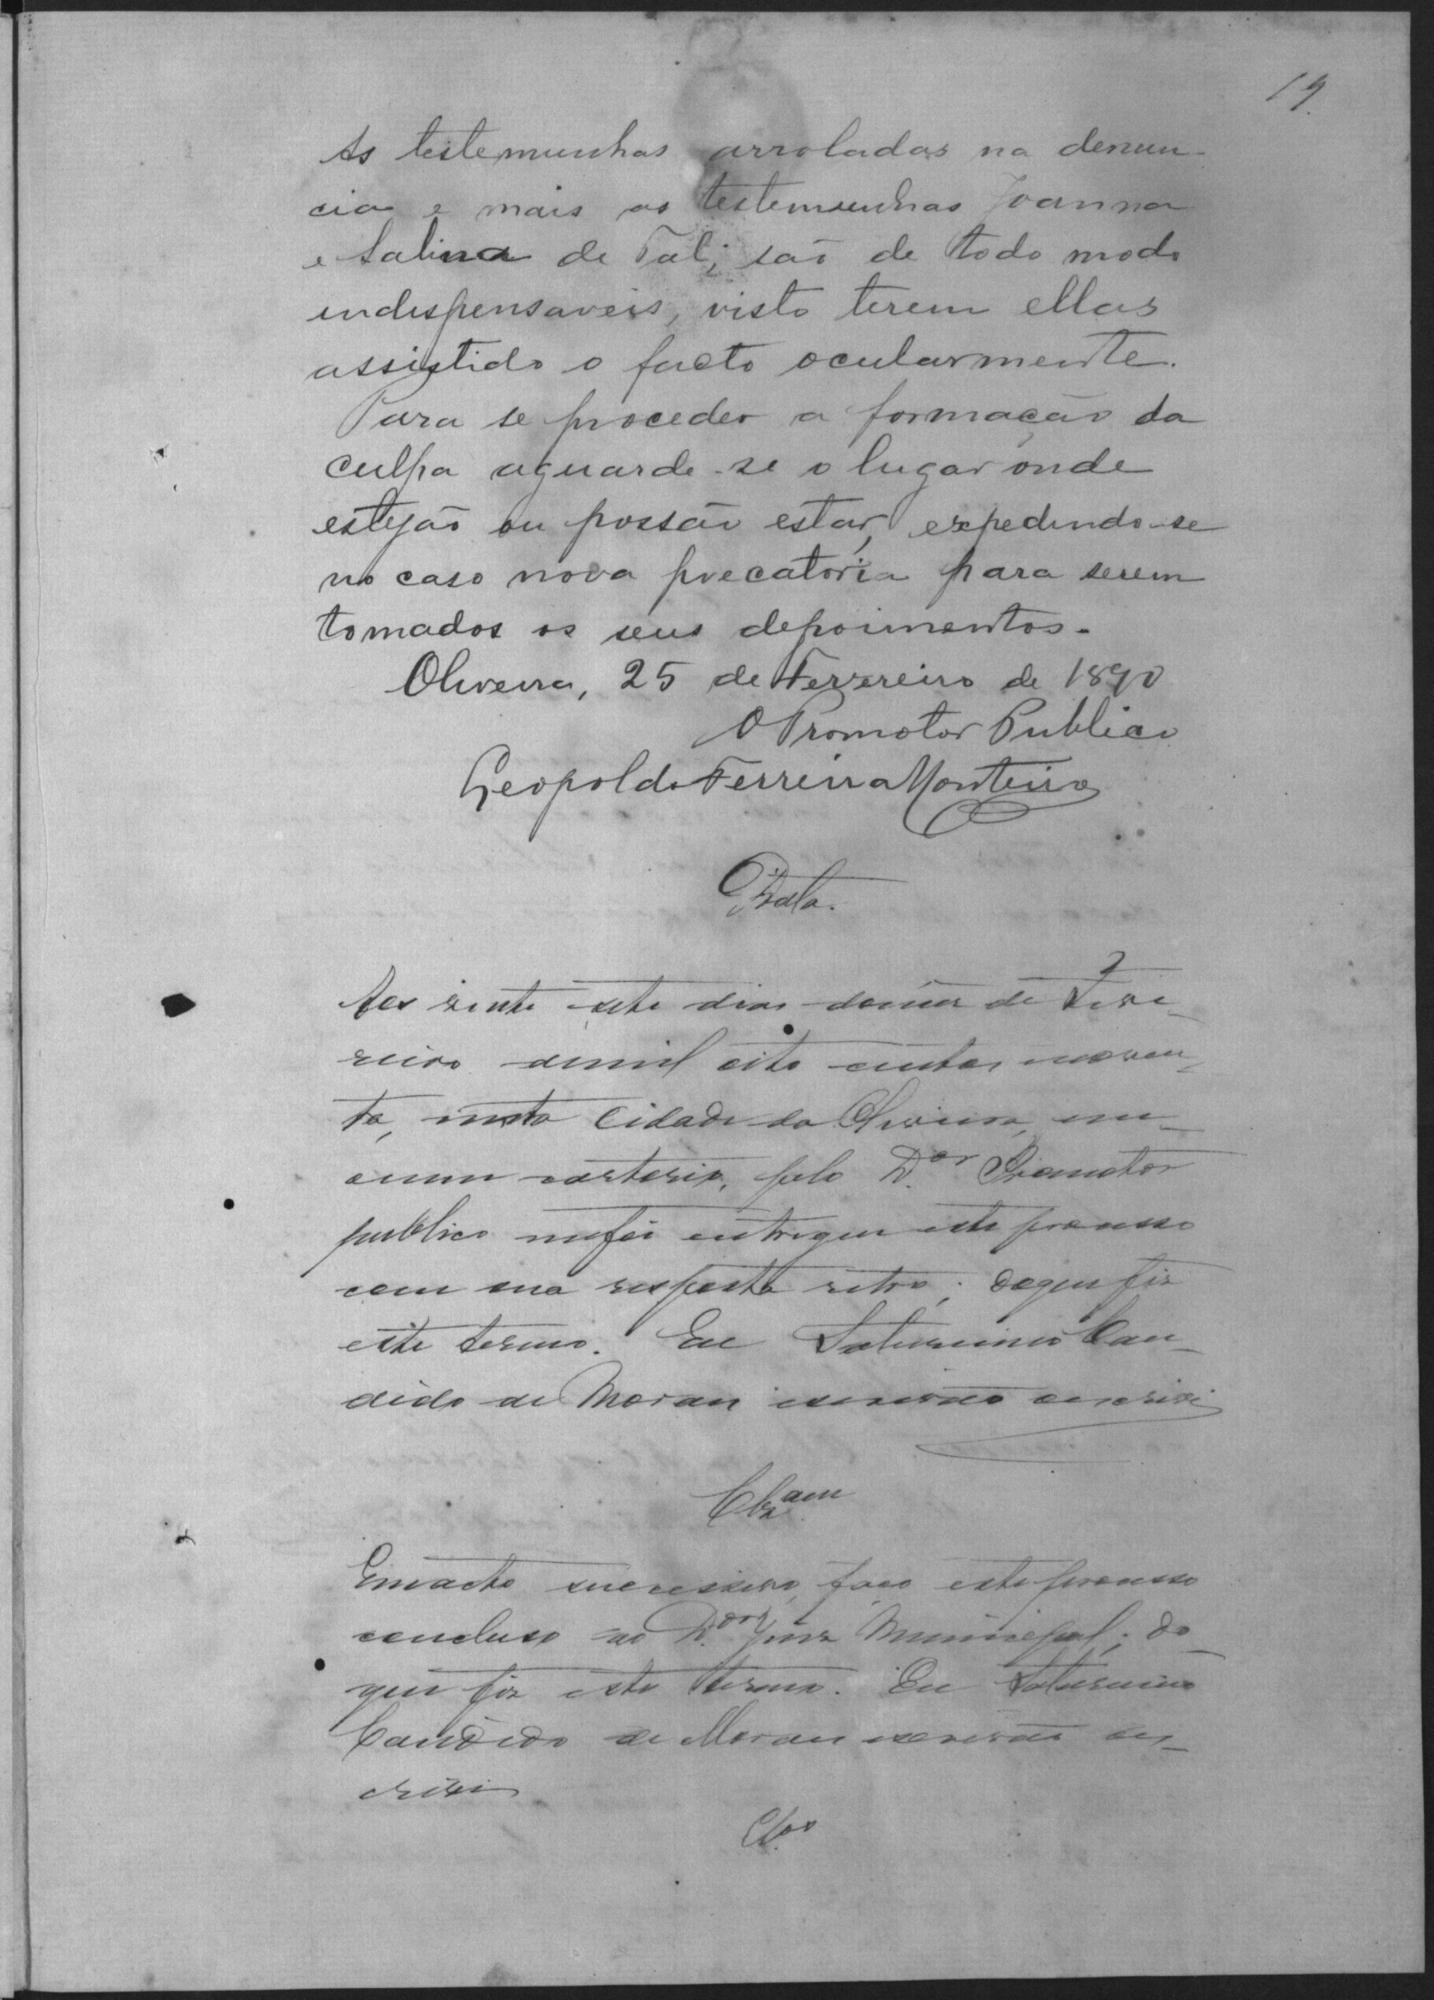 19
As testemunhas arroladas na denun-
cia e mais as testemunhas Joanna
e Salina de Tal; são de todo modo
indispensaveis, visto terem ellas
assistido o facto ocularmente.
Para se proceder a formação da
culpa aguarde-se o lugar onde
estejão ou possão estar, expedindo-se
no caso nova precatoria para serem
tomados os seus depoimentos.
Oliveira, 25 de Fevereiro de 1890
O Promotor Publico
Leopoldo Ferreira Monteiro
Data.
Aos vinte sete dias domez de Feve-
reiro demil oito centos noven-
ta, nesta Cidade da Oliveira, em
omeu cartorio, pelo D.or Promotor
publico mefoi entregue este processo
com sua resposta retro; doque fiz
este termo. Eu Saturnino Can-
dido de Moraes escrivão escrevi
Clzam
Emacto successivo, faço este processo
concluso ao D.or Juiz Municipal; do
que fiz este termo. Eu Saturnino
Candido de Moraes escrivão es-
crevi
Clos